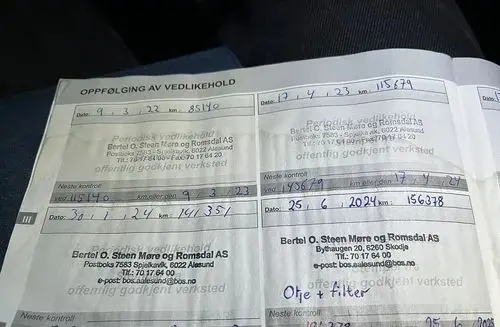 OPPFØLGING AV VEDLIKEHOLD
Dato: 9 . 3 . 22 km: 85140
Periodisk vedlikehold
Bertel O. Steen Møre og Romsdal AS
Postboks 7583 - Spjelkavik, 6022 Aalesund
Tlf.: 70 17 64 00 - Fax 70 17 64 20
offentlig godkjent verksted
Neste kontroll
ved 115140 km eller den 9 3 23
Dato: 17 . 4 . 23 km: 115679
Periodisk vedlikehold
Bertel O. Steen Møre og Romsdal AS
Postboks 7583 - Spjelkavik, 6022 Aalesund
Tlf.: 70 17 64 00
offentlig godkjent verksted
Neste kontroll
ved 145679 km eller den 17 . 4 . 24
III
Dato: 30 , 1 , 24 km: 141351
Bertel O. Steen Møre og Romsdal AS
Postboks 7583 Spjelkavik, 6022 Aalesund
Tlf.: 70 17 64 00
e-post: bos.aalesund@bos.no
offentlig godkjent verksted
Neste kontroll
Dato: 25 , 6 , 2024 km: 156378
Bertel O. Steen Møre og Romsdal AS
Bythaugen 20, 6260 Skodje
Tlf.: 70 17 64 00
e-post: bos.aalesund@bos.no
Olje + filter
Neste kontroll